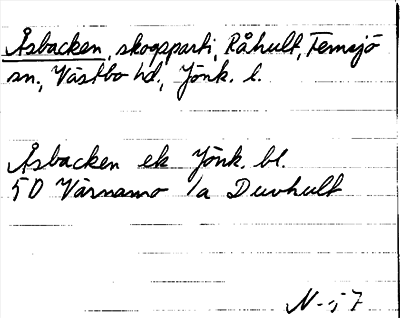 Åsbacken, skogsparti, Råhult, Femsjö
sn, Västbo hd, Jönk. l.
Åsbacken ek Jönk. bl.
5D Värnamo 1a Duvhult
N-57